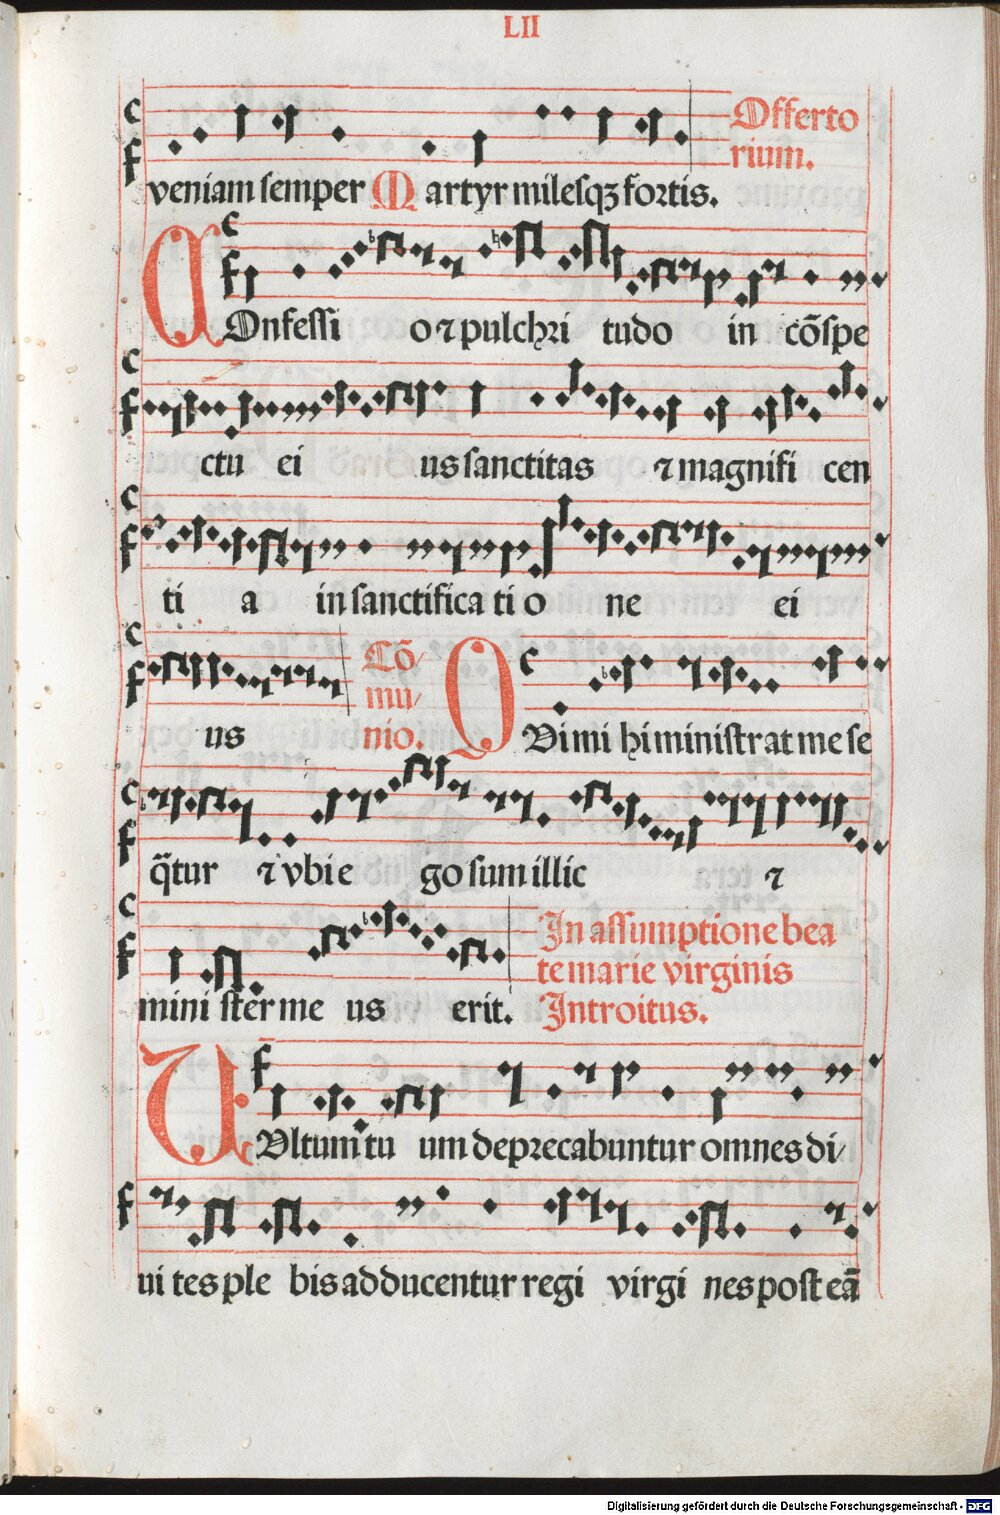 LII
Offerto
rium.
veniam semper Martyr milesqꝫ fortis.
COnfessi o ⁊ pulchri tudo in cōspe
ctu ei us sanctitas ⁊ magnifi cen
ti a in sanctifica ti o ne ei
us
Cō/
mu/
nio.
QVi mi hi ministrat me se
q̄tur ⁊ vbi e go sum illic ⁊
mini ster me us erit.
In assumptione bea
te marie virginis
Introitus.
VVltum tu um deprecabuntur omnes di/
ui tes ple bis adducentur regi virgi nes post eā
Digitalisierung gefördert durch die Deutsche Forschungsgemeinschaft - DFG